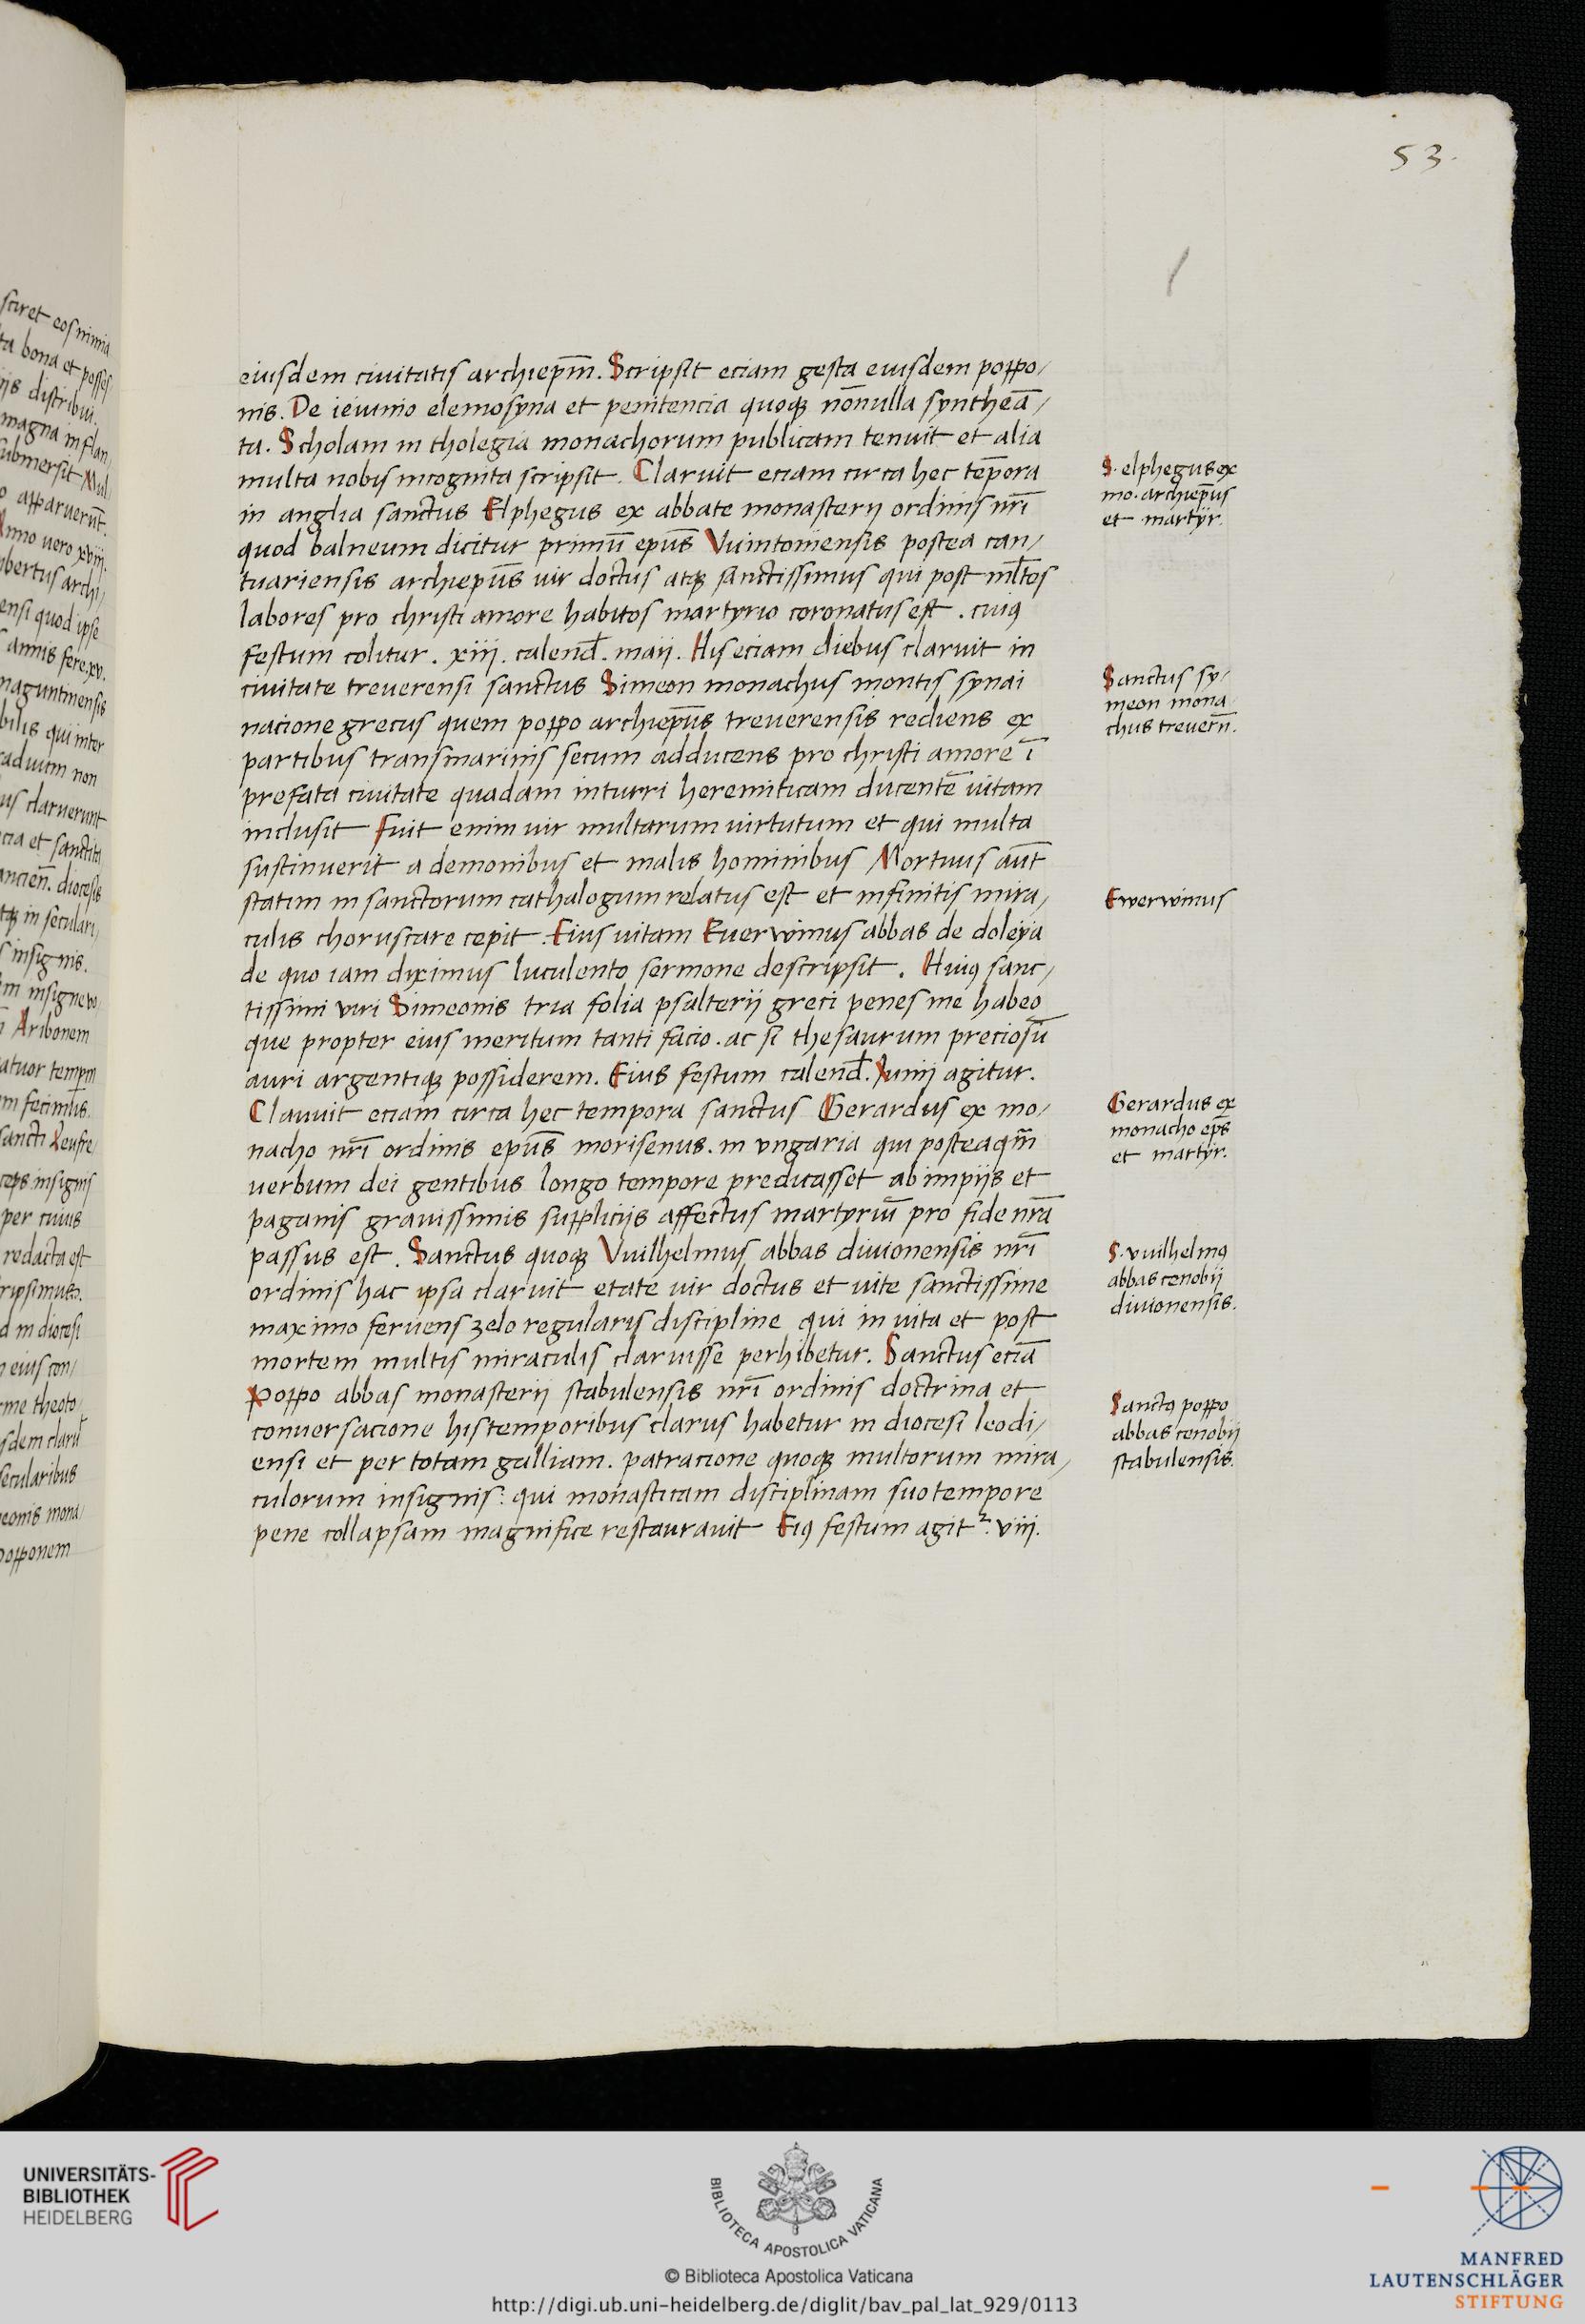 53.
eiusdem ciuitatis archiep̄m. Scripsit eciam gesta eiusdem poppo/
nis. De ieiunio elemosyna et penitencia quoqꝫ nōnulla syntheā/
ta. Scholam in tholegia monachorum publicam tenuit et alia
multa nobis incognita scripsit. Claruit eciam circa hec tēpora
in anglia sanctus Elphegus ex abbate monasterij ordinis nr̄i
quod balneum dicitur primū ep̄us Vuintoniensis postea can/
tuariensis archiep̄us vir doctus atqꝫ sanctissimus qui post ml̄tos
labores pro christi amore habitos martyrio coronatus est. cuiꝯ
festum colitur. xiij. calend̄. maij. His eciam diebus claruit in
ciuitate treuerensi sanctus Simeon monachus montis synai
nacione grecus quem poppo archiep̄us treuerensis rediens ex
partibus transmarinis secum adducens pro christi amore ī
prefata ciuitate quadam in turri heremiticam ducentē uitam
inclusit Fuit enim vir multarum virtutum et qui multa
sustinuerit a demonibus et malis hominibus Mortuus aūt
statim in sanctorum cathalogum relatus est et infinitis mira/
culis choruscare cepit. Eius uitam Euerwinus abbas de doleya
de quo iam diximus luculento sermone descripsit. Huiꝯ sanc/
tissimi viri Simeonis tria folia psalterij greci penes me habeo
que propter eius meritum tanti facio. ac si thesaurum preciosū
auri argentiqꝫ possiderem. Eius festum calend̄. Iunij agitur.
Claruit eciam circa hec tempora sanctus Gerardus ex mo/
nacho nr̄i ordinis ep̄us morisenus. in vngaria qui posteaqm̄
uerbum dei gentibus longo tempore predicasset ab impijs et
paganis grauissimis supplicijs affectus martyriū pro fide nr̄a
passus est. Sanctus quoqꝫ Vuilhelmus abbas diuionensis nr̄i
ordinis hac ipsa claruit etate vir doctus et uite sanctissime
maximo feruens zelo regularis discipline qui in uita et post
mortem multis miraculis claruisse perhibetur. Sanctus eciā
Poppo abbas monasterij stabulensis nr̄i ordinis doctrina et
conuersacione his temporibus clarus habetur in diocesi leodi/
ensi et per totam galliam. patracione quoqꝫ multorum mira/
culorum insignis: qui monasticam disciplinam suo tempore
pene collapsam magnifice restaurauit Eiꝯ festum agit². viij.
S. elphegus ex
mo. archiep̄us
et martyr.
Sanctus sy/
meon mona
chus treuerń.
Ewerwinus
Gerardus ex
monacho ep̄s
et martyr.
S. vuilhelmꝯ
abbas cenobij
diuionensis.
Sanctꝯ poppo
abbas cenobij
stabulensis.
UNIVERSITÄTS-
BIBLIOTHEK
HEIDELBERG
BIBLIOTECA APOSTOLICA VATICANA
© Biblioteca Apostolica Vaticana
http://digi.ub.uni-heidelberg.de/diglit/bav_pal_lat_929/0113
MANFRED
LAUTENSCHLÄGER
STIFTUNG